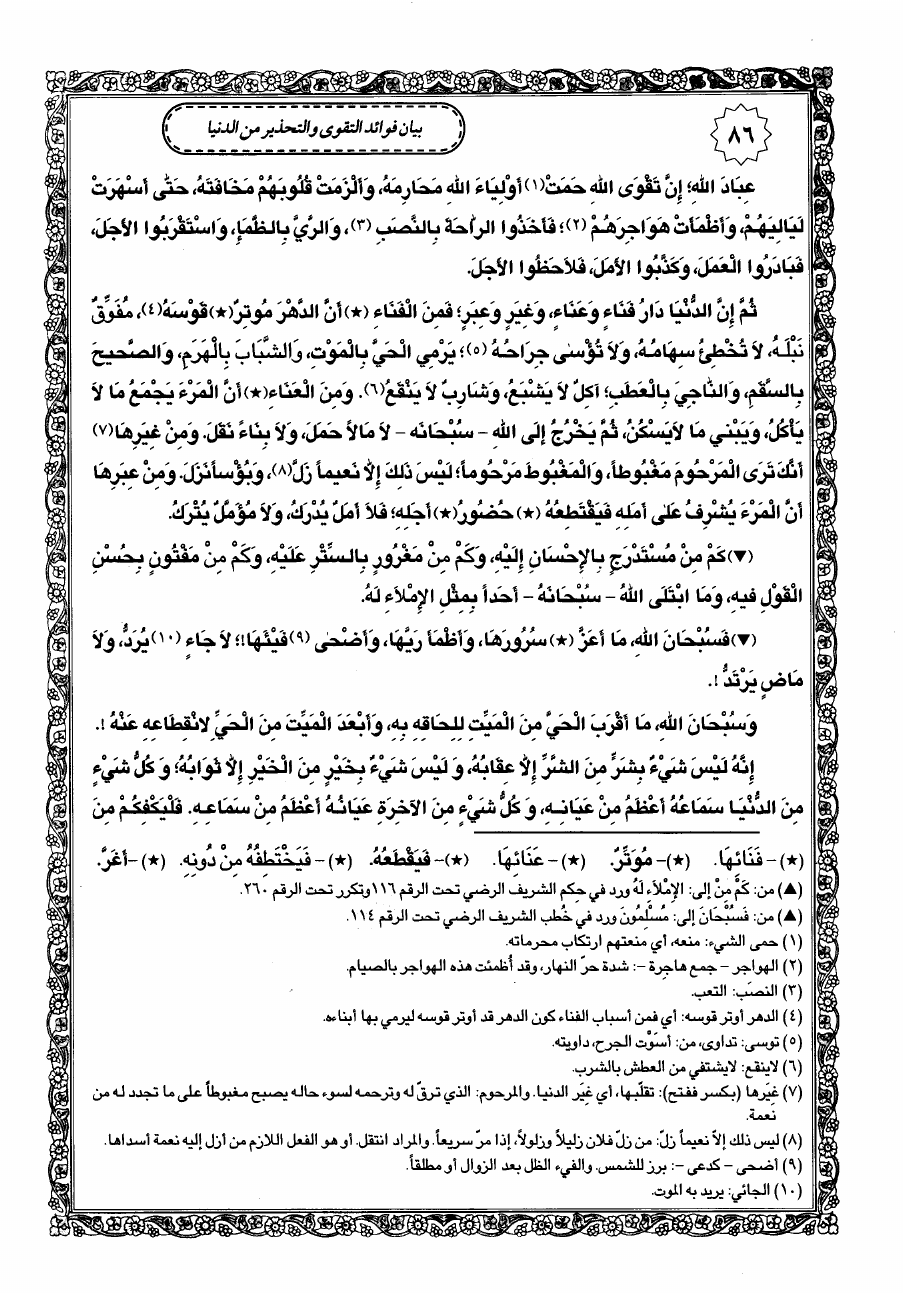 ٨٦
بيان فوائد التقوى والتحذير من الدنيا
عِبَادَ اللهِ؛ إِنَّ تَقْوَى اللهِ حَمَتْ(١) أَوْلِيَاءَ اللهِ مَحَارِمَهُ، وَأَلْزَمَتْ قُلُوبَهُمْ مَخَافَتَهُ، حَتَّى أَسْهَرَتْ
لَيَالِيَهُمْ، وَأَظْمَأَتْ هَوَاجِرَهُمْ (٢)؛ فَأَخَذُوا الرَّاحَةَ بِالنَّصَبِ (٣)، وَالرِّيَّ بِالظَّمَإِ، وَاسْتَقْرَبُوا الأَجَلَ،
فَبَادَرُوا الْعَمَلَ، وَكَذَّبُوا الأَمَلَ، فَلاَحَظُوا الأَجَلَ.
ثُمَّ إِنَّ الدُّنْيَا دَارُ فَنَاءٍ وَعَنَاءٍ، وَغِيَرٍ وَعِبَرٍ؛ فَمِنَ الْفَنَاءِ (★) أَنَّ الدَّهْرَ مُوتِرٌ(★) قَوْسَهُ(٤)، مُفَوِّقٌ
نَبْلَهُ، لاَ تُخْطِئُ سِهَامُهُ، وَلاَ تُؤْسٰى جِرَاحُهُ (٥)؛ يَرْمِي الْحَيَّ بِالْمَوْتِ، وَالشَّبَابَ بِالْهَرَمِ، وَالصَّحِيحَ
بِالسَّقَمِ، وَالنَّاجِيَ بِالْعَطَبِ؛ آكِلٌ لاَ يَشْبَعُ، وَشَارِبٌ لاَ يَنْقَعُ(٦). وَمِنَ الْعَنَاءِ(★) أَنَّ الْمَرْءَ يَجْمَعُ مَا لاَ
يَأْكُلُ، وَيَبْنِي مَا لاَيَسْكُنُ، ثُمَّ يَخْرُجُ إِلَى اللهِ – سُبْحَانَه – لاَ مَالاً حَمَلَ، وَلاَ بِنَاءً نَقَلَ. وَمِنْ غِيَرِهَا(٧)
أَنَّكَ تَرَى الْمَرْحُومَ مَغْبُوطاً، وَالْمَغْبُوطَ مَرْحُوماً؛ لَيْسَ ذَلِكَ إِلاَّ نَعِيماً زَلَّ(٨)، وَبُؤْساً نَزَلَ. وَمِنْ عِبَرِهَا
أَنَّ الْمَرْءَ يُشْرِفُ عَلٰى أَمَلِهِ فَيَقْتَطِعُهُ (★) حُضُورُ(★) أَجَلِهِ؛ فَلاَ أَمَلٌ يُدْرَكُ، وَلاَ مُؤَمَّلٌ يُتْرَكُ.
(▼) كَمْ مِنْ مُسْتَدْرَجٍ بِالإِحْسَانِ إِلَيْهِ، وَكَمْ مِنْ مَغْرُورٍ بِالسِّتْرِ عَلَيْهِ، وَكَمْ مِنْ مَفْتُونٍ بِحُسْنِ
الْقَوْلِ فِيهِ، وَمَا ابْتَلَى اللهُ – سُبْحَانَهُ – أَحَداً بِمِثْلِ الإِمْلاَءِ لَهُ.
(▼) فَسُبْحَانَ اللهِ، مَا أَعَزَّ (★) سُرُورَهَا، وَأَظْمَأَ رِيَّهَا، وَأَضْحٰى (٩) فَيْئَهَا!؛ لاَ جَاءٍ (١٠) يُرَدُّ، وَلاَ
مَاضٍ يَرْتَدُّ !.
وَسُبْحَانَ اللهِ، مَا أَقْرَبَ الْحَيَّ مِنَ الْمَيِّتِ لِلِحَاقِهِ بِهِ، وَأَبْعَدَ الْمَيِّتَ مِنَ الْحَيِّ لاِنْقِطَاعِهِ عَنْهُ !.
إِنَّهُ لَيْسَ شَيْءٌ بِشَرٍّ مِنَ الشَّرِّ إِلاَّ عِقَابُهُ، وَ لَيْسَ شَيْءٌ بِخَيْرٍ مِنَ الْخَيْرِ إِلاَّ ثَوَابُهُ؛ وَ كُلُّ شَيْءٍ
مِنَ الدُّنْيَا سَمَاعُهُ أَعْظَمُ مِنْ عِيَانِهِ، وَ كُلُّ شَيْءٍ مِنَ الآخِرَةِ عَيَانُهُ أَعْظَمُ مِنْ سَمَاعِهِ. فَلْيَكْفِكُمْ مِنَ
(★)- فَنَائِهَا. (★)- مُوَتِّرٌ. (★)- عَنَائِهَا. (★)- فَيَقْطَعُهُ. (★)- فَيَخْتَطِفُهُ مِنْ دُونِهِ. (★)- أَغَرَّ.
(▲) من: كَمْ مِنْ إلى: الإِمْلاَءِ لَهُ ورد في حِكم الشريف الرضي تحت الرقم ١١٦ وتكرر تحت الرقم ٢٦٠.
(▲) من: فَسُبْحَانَ إلى: مُسْلِمُونَ ورد في خُطب الشريف الرضي تحت الرقم ١١٤.
(١) حمى الشيء: منعه، أي منعتهم ارتكاب محرماته.
(٢) الهواجر – جمع هاجرة –: شدة حرّ النهار، وقد أُظمئت هذه الهواجر بالصيام.
(٣) النصَب: التعب.
(٤) الدهر أوتر قوسه: أي فمن أسباب الفناء كون الدهر قد أوتر قوسه ليرمي بها أبناءه.
(٥) توسى: تداوى، من: أسَوْت الجرح، داويته.
(٦) لاينقع: لايشتفي من العطش بالشرب.
(٧) غِيَرها (بكسر ففتح): تقلّبها، أي غِيَر الدنيا. والمرحوم: الذي ترقّ له وترحمه لسوء حاله يصبح مغبوطاً على ما تجدد له من
نعمة.
(٨) ليس ذلك إلاّ نعيماً زلّ: من زلّ فلان زليلاً وزلولاً، إذا مرّ سريعاً. والمراد انتقل. أو هو الفعل اللازم من أزل إليه نعمة أسداها.
(٩) أضحى – كدعى –: برز للشمس. والفيء الظل بعد الزوال أو مطلقاً.
(١٠) الجائي: يريد به الموت.